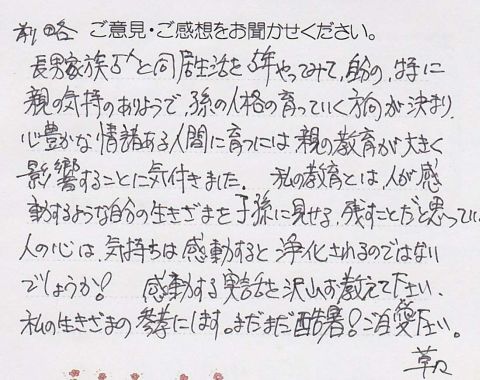 前略 ご意見・ご感想をお聞かせください。
長男家族5人と同居生活を5年やってみて、自分の、特に
親の気持のありようで、孫の人格の育っていく方向が決まり、
心豊かな情緒ある人間に育つには親の教育が大きく
影響することに気付きました。 私の教育とは、人が感
動するような自分の生きざまを子孫に見せる、残すことだと思ってい
人の心は、気持ちは感動すると浄化されるのではない
でしょうか! 感動する実話を沢山お教えて下さい、
私の生きざまの参考にします。まだまだ酷暑!ご自愛下さい。
草々